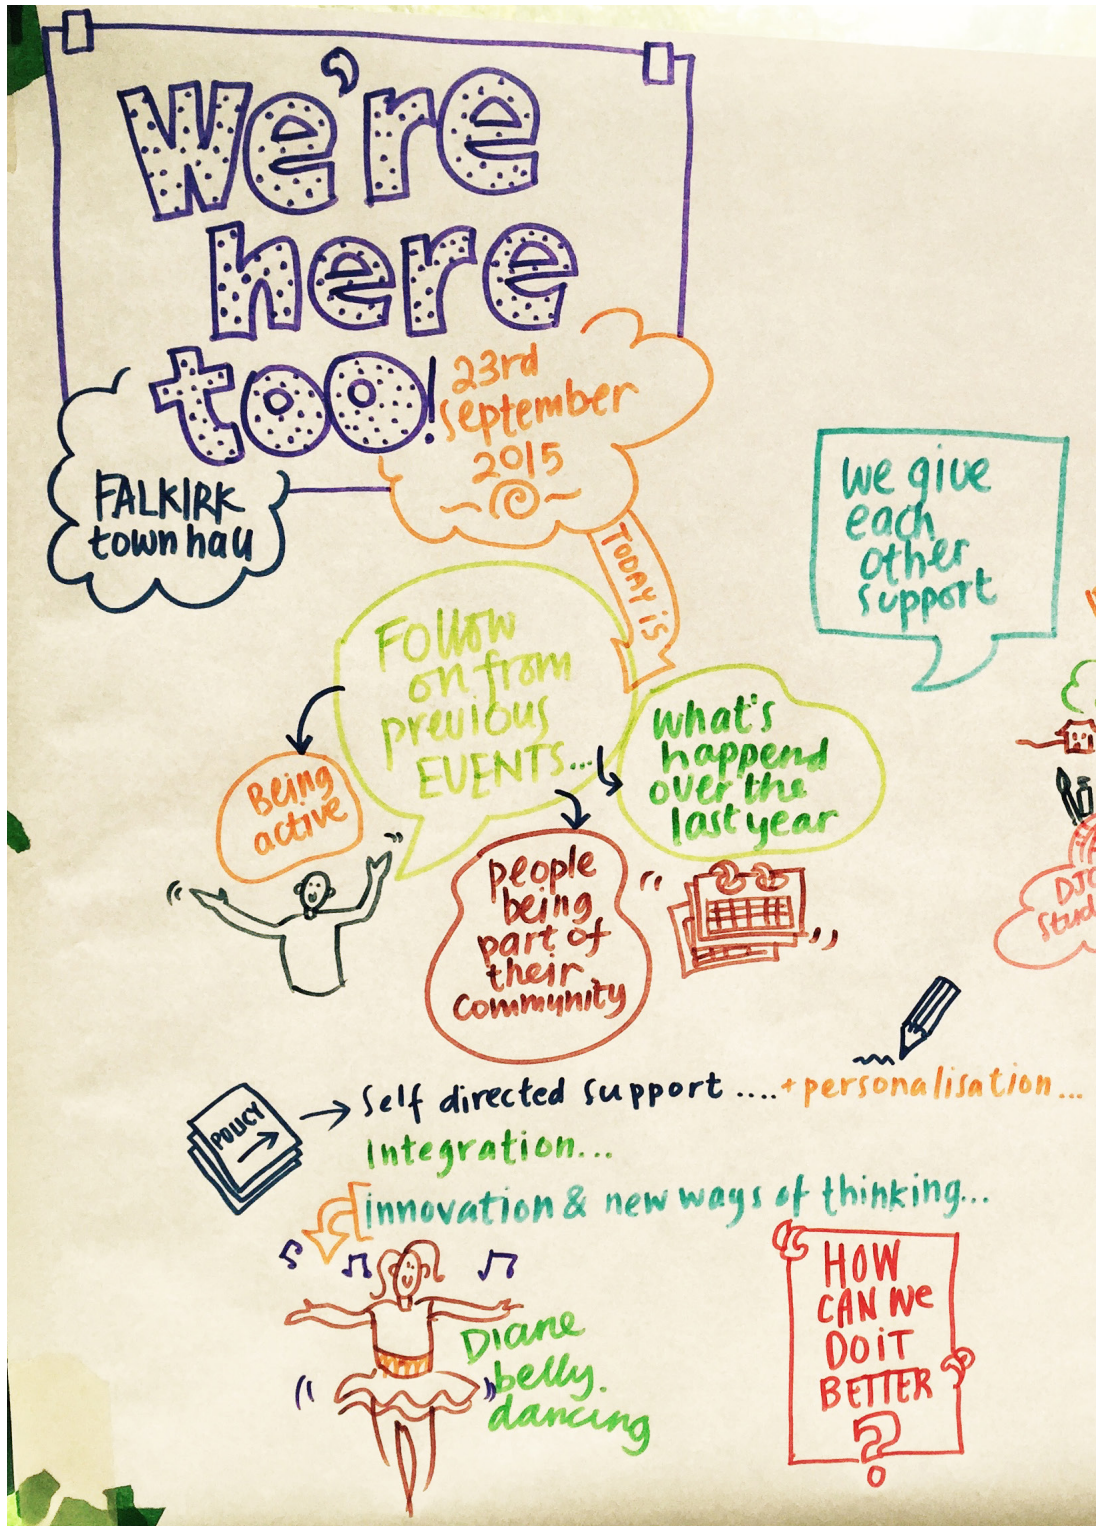 we're
here
too!
23rd
september
2015
FALKIRK
town hall
TODAY is
we give
each
other
support
Follow
on from
previous
EVENTS...
what's
happend
over the
last year
Being
active
people
being
part of
their
community
POLICY
self directed support ....+personalisation...
integration...
innovation & new ways of thinking...
Diane
belly.
dancing
HOW
CAN WE
DO iT
BETTER
?